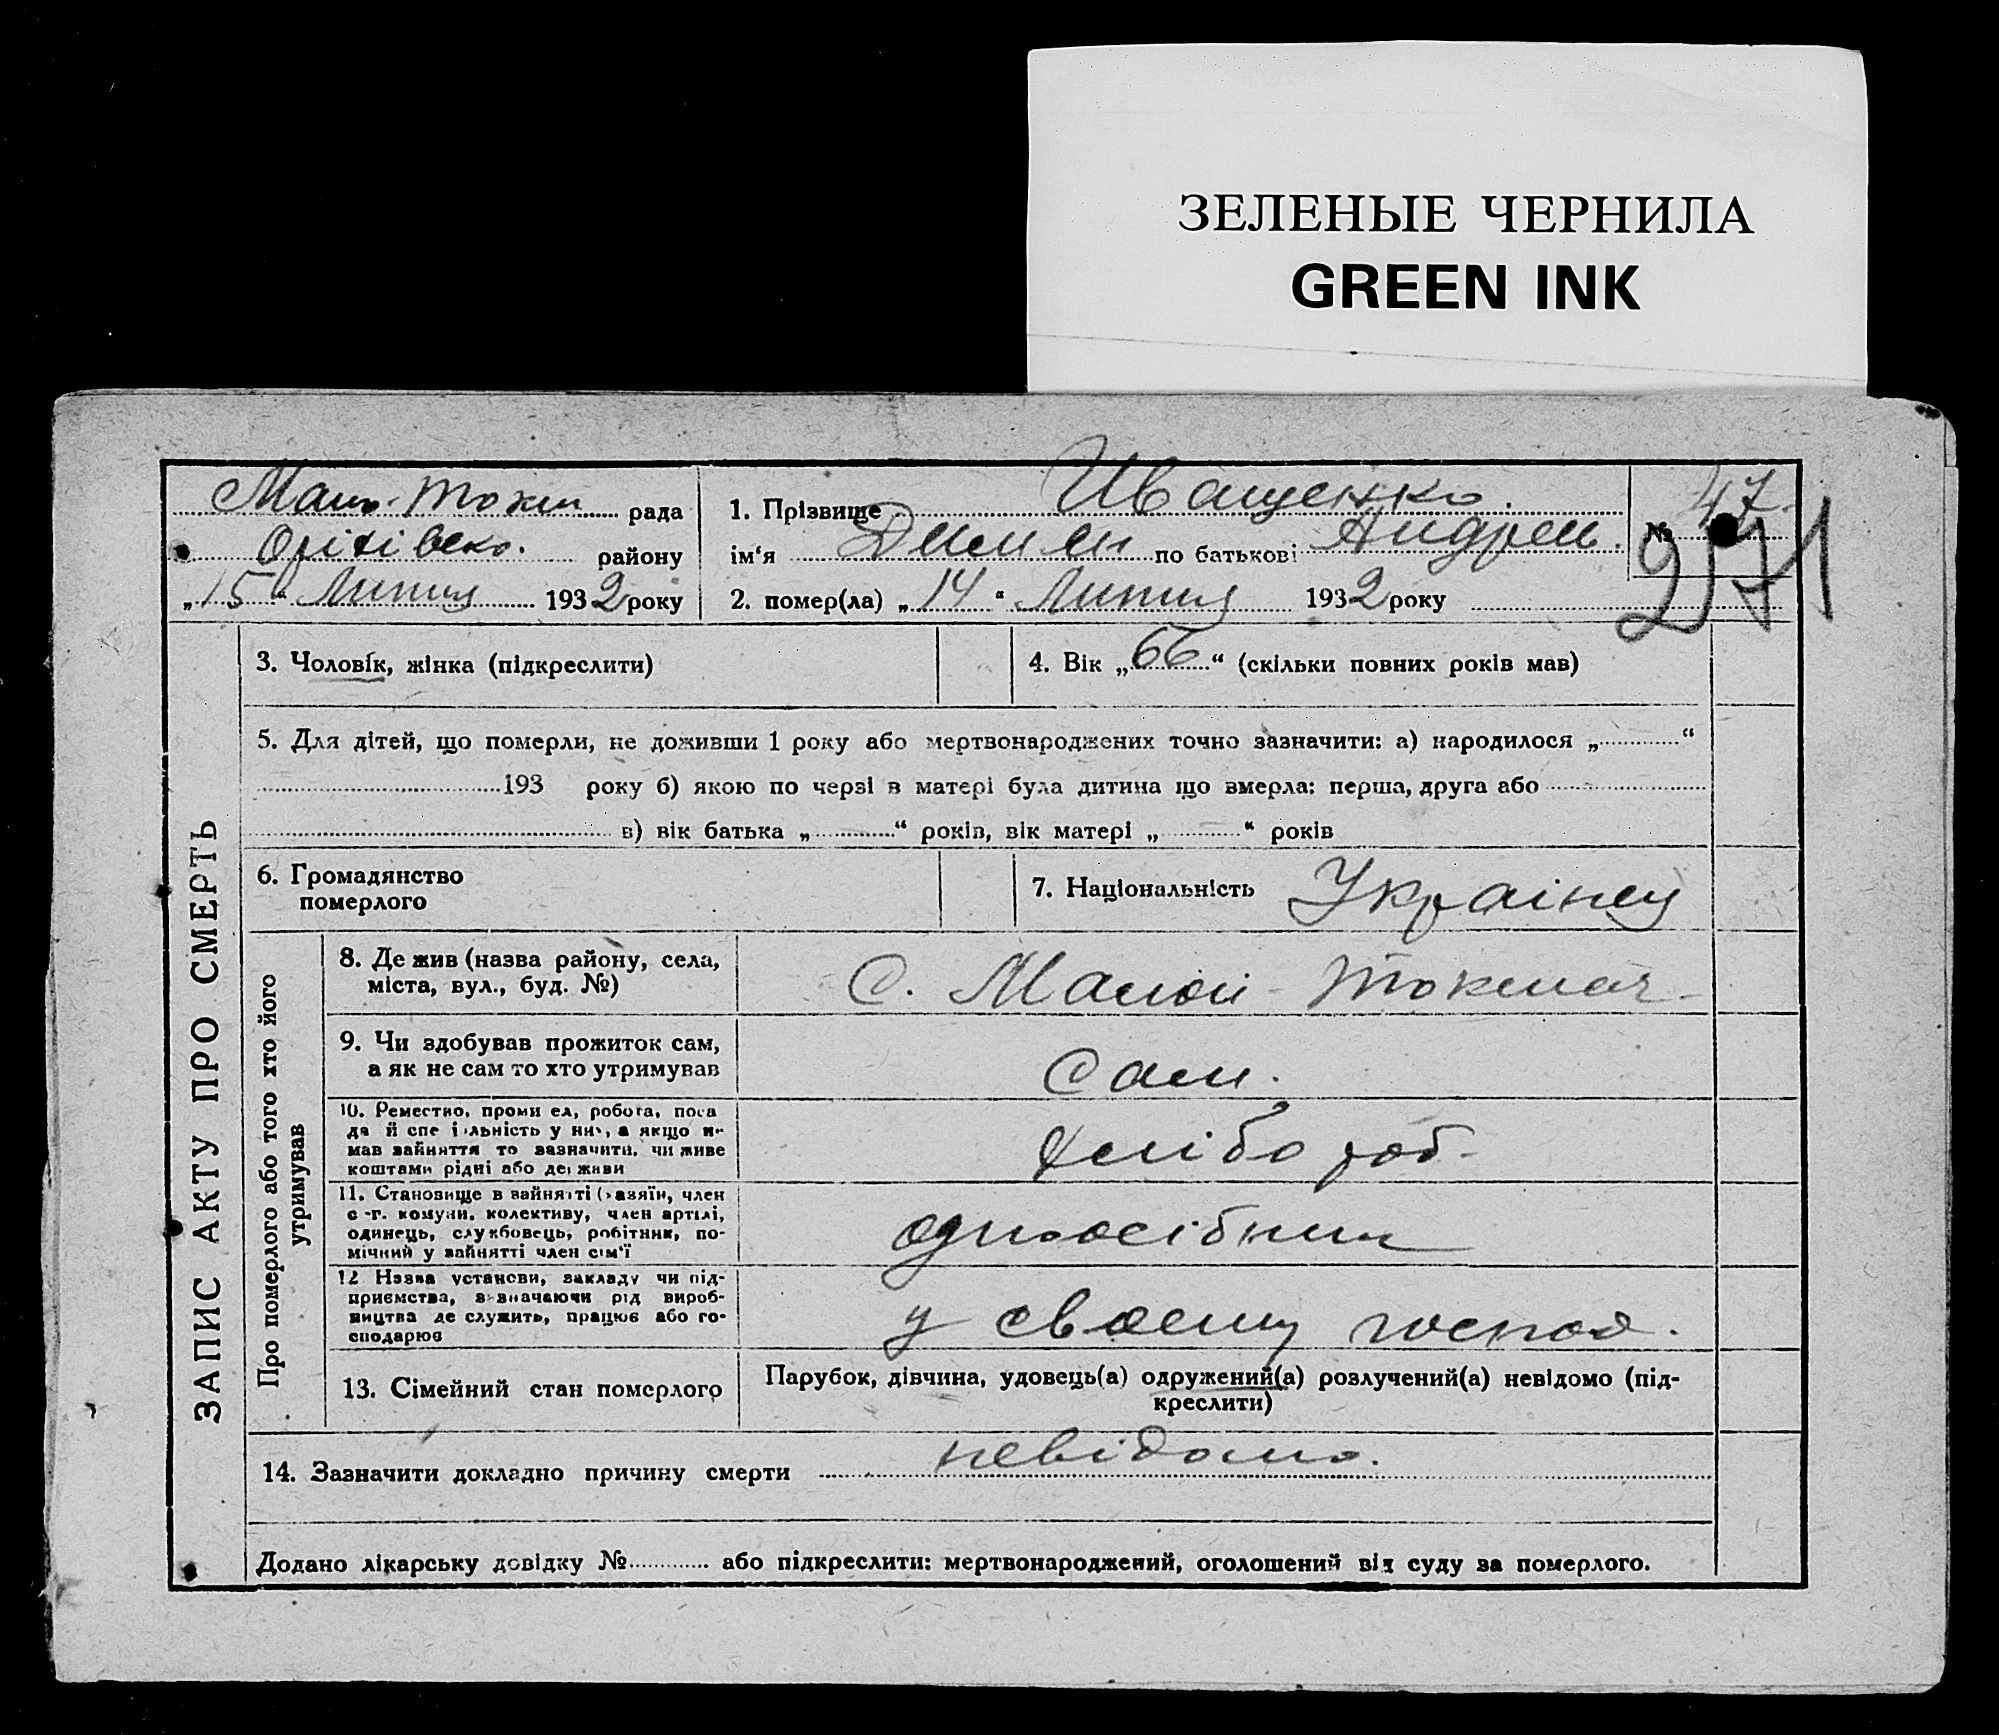 ЗЕЛЕНЫЕ ЧЕРНИЛА
GREEN INK
Мало-Токм рада
Оріхівсько. району
„15“ Липця 1932 року
1. Прізвище Иващенко.
ім‘я по батькові Андрей.
2. помер(ла) „14“ Липця 1932 року
№ 47
271
ЗАПИС АКТУ ПРО СМЕРТЬ
3. Чоловік, жінка (підкреслити)
4. Вік „66“ (скільки повних років мав)
5. Для дітей, що померли, не доживши 1 року або мертвонароджених точно зазначити: а) народилося „ “
193 року б) якою по черзі в матері була дитина що вмерла: перша, друга або
в) вік батька „ “ років, вік матері „ “ років
6. Громадянство
померлого
7. Національність Украінец
Про померлого або того хто його
утримував
8. Де жив (назва району, села,
міста, вул., буд. №)
С. Малой-Токмач-
9. Чи здобував прожиток сам,
а як не сам то хто утримував
Сам.
10. Реместно, проми ел, робота, поса
да й спе і льність у ни , а якщо н-
мав зайняття то зазначити, чи живе
коштами рідні або держави
Хлібороб-
11. Становище в зайнятті (хазяїн, член
с -г. комуни, колективу, член артілі,
одинець, службовець, робітник, по-
мічний у зайнятті член сім'ї
односібник
12 Назва установи, закладу чи під-
приємства, зазначаючи рід вироб-
ництва де служить, працює або го-
сподарює
у своему господ.
13. Сімейний стан померлого
Парубок, дівчина, удовець(а) одружений(а) розлучений(а) невідомо (під-
креслити)
14. Зазначити докладно причину смерти невідомо.
Додано лікарську довідку № або підкреслити: мертвонароджений, оголошений від суду за померлого.